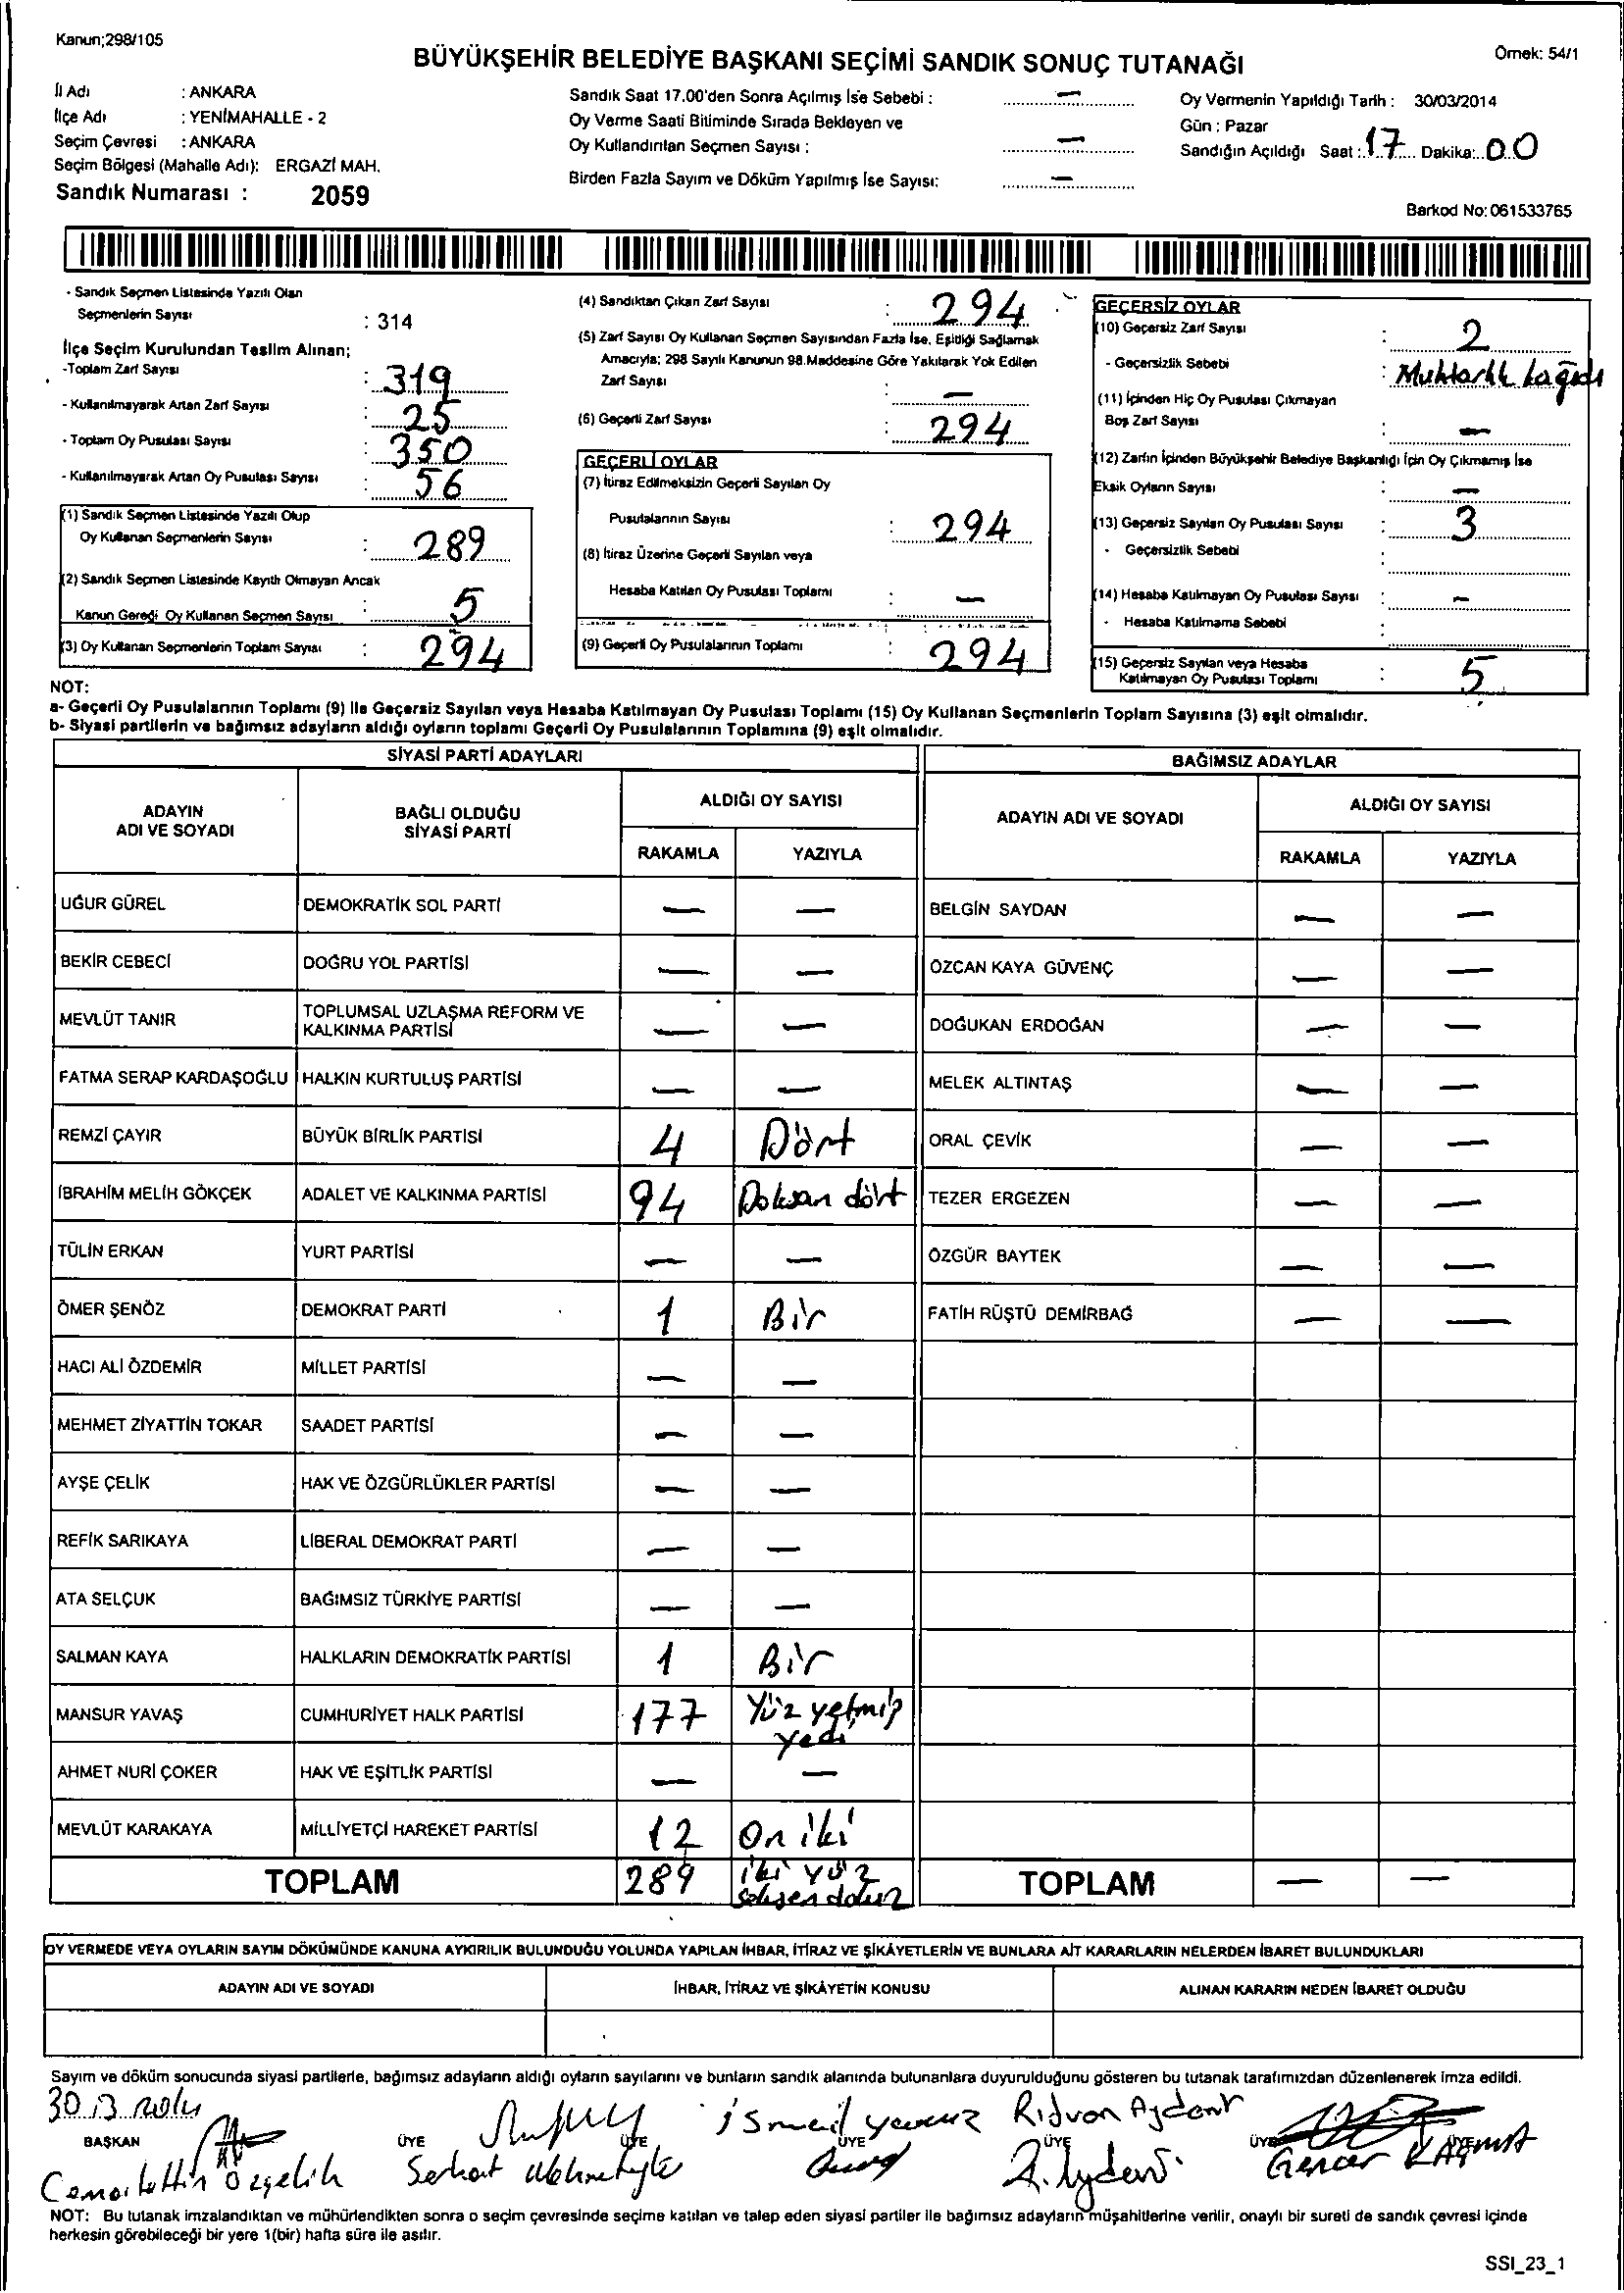 Kanun;298/105
BÜYÜKŞEHİR BELEDİYE BAŞKANI SEÇİMİ SANDIK SONUÇ TUTANAĞI
Örnek: 54/1
İl Adı : ANKARA
İlçe Adı : YENİMAHALLE - 2
Seçim Çevresi : ANKARA
Seçim Bölgesi (Mahalle Adı): ERGAZİ MAH.
Sandık Numarası : 2059
Sandık Saat 17.00'den Sonra Açılmış İse Sebebi : —
Oy Verme Saati Bitiminde Sırada Bekleyen ve
Oy Kullandırılan Seçmen Sayısı : —
Birden Fazla Sayım ve Döküm Yapılmış İse Sayısı: —
Oy Vermenin Yapıldığı Tarih : 30/03/2014
Gün : Pazar
Sandığın Açıldığı Saat : 17 Dakika: 00
Barkod No: 061533765
- Sandık Seçmen Listesinde Yazılı Olan
Seçmenlerin Sayısı : 314
İlçe Seçim Kurulundan Teslim Alınan;
-Toplam Zarf Sayısı : 319
- Kullanılmayarak Artan Zarf Sayısı : 25
- Toplam Oy Pusulası Sayısı : 350
- Kullanılmayarak Artan Oy Pusulası Sayısı : 56
(1) Sandık Seçmen Listesinde Yazılı Olup
Oy Kullanan Seçmenlerin Sayısı : 289
(2) Sandık Seçmen Listesinde Kayıtlı Olmayan Ancak
Kanun Gereği Oy Kullanan Seçmen Sayısı : 5
(3) Oy Kullanan Seçmenlerin Toplam Sayısı : 294
(4) Sandıktan Çıkan Zarf Sayısı : 294
(5) Zarf Sayısı Oy Kullanan Seçmen Sayısından Fazla İse, Eşitliği Sağlamak
Amacıyla; 298 Sayılı Kanunun 98.Maddesine Göre Yakılarak Yok Edilen
Zarf Sayısı : —
(6) Geçerli Zarf Sayısı : 294
GEÇERLİ OYLAR
(7) İtiraz Edilmeksizin Geçerli Sayılan Oy
Pusulalarının Sayısı : 294
(8) İtiraz Üzerine Geçerli Sayılan veya
Hesaba Katılan Oy Pusulası Toplamı : —
(9) Geçerli Oy Pusulalarının Toplamı : 294
GEÇERSİZ OYLAR
(10) Geçersiz Zarf Sayısı : 2
- Geçersizlik Sebebi : Muhtarlık kağıdı
(11) İçinden Hiç Oy Pusulası Çıkmayan
Boş Zarf Sayısı : —
(12) Zarfın İçinden Büyükşehir Belediye Başkanlığı İçin Oy Çıkmamış İse
Eksik Oyların Sayısı : —
(13) Geçersiz Sayılan Oy Pusulası Sayısı : 3
- Geçersizlik Sebebi :
(14) Hesaba Katılmayan Oy Pusulası Sayısı : —
- Hesaba Katılmama Sebebi :
(15) Geçersiz Sayılan veya Hesaba
Katılmayan Oy Pusulası Toplamı : 5
NOT:
a- Geçerli Oy Pusulalarının Toplamı (9) ile Geçersiz Sayılan veya Hesaba Katılmayan Oy Pusulası Toplamı (15) Oy Kullanan Seçmenlerin Toplam Sayısına (3) eşit olmalıdır.
b- Siyasi partilerin ve bağımsız adayların aldığı oyların toplamı Geçerli Oy Pusulalarının Toplamına (9) eşit olmalıdır.
SİYASİ PARTİ ADAYLARI
BAĞIMSIZ ADAYLAR
ADAYIN ADI VE SOYADI
BAĞLI OLDUĞU SİYASİ PARTİ
ALDIĞI OY SAYISI
RAKAMLA YAZIYLA
ADAYIN ADI VE SOYADI
ALDIĞI OY SAYISI
RAKAMLA YAZIYLA
UĞUR GÜREL DEMOKRATİK SOL PARTİ — — BELGİN SAYDAN — —
BEKİR CEBECİ DOĞRU YOL PARTİSİ — — ÖZCAN KAYA GÜVENÇ — —
MEVLÜT TANIR TOPLUMSAL UZLAŞMA REFORM VE KALKINMA PARTİSİ — — DOĞUKAN ERDOĞAN — —
FATMA SERAP KARDAŞOĞLU HALKIN KURTULUŞ PARTİSİ — — MELEK ALTINTAŞ — —
REMZİ ÇAYIR BÜYÜK BİRLİK PARTİSİ 4 Dört ORAL ÇEVİK — —
İBRAHİM MELİH GÖKÇEK ADALET VE KALKINMA PARTİSİ 94 Doksan dört TEZER ERGEZEN — —
TÜLİN ERKAN YURT PARTİSİ — — ÖZGÜR BAYTEK — —
ÖMER ŞENÖZ DEMOKRAT PARTİ 1 Bir FATİH RÜŞTÜ DEMİRBAĞ — —
HACI ALİ ÖZDEMİR MİLLET PARTİSİ — —
MEHMET ZİYATTİN TOKAR SAADET PARTİSİ — —
AYŞE ÇELİK HAK VE ÖZGÜRLÜKLER PARTİSİ — —
REFİK SARIKAYA LİBERAL DEMOKRAT PARTİ — —
ATA SELÇUK BAĞIMSIZ TÜRKİYE PARTİSİ — —
SALMAN KAYA HALKLARIN DEMOKRATİK PARTİSİ 1 Bir
MANSUR YAVAŞ CUMHURİYET HALK PARTİSİ 177 Yüz yetmiş yedi
AHMET NURİ ÇOKER HAK VE EŞİTLİK PARTİSİ — —
MEVLÜT KARAKAYA MİLLİYETÇİ HAREKET PARTİSİ 12 On iki
TOPLAM 289 iki yüz seksen dokuz TOPLAM — —
OY VERMEDE VEYA OYLARIN SAYIM DÖKÜMÜNDE KANUNA AYKIRILIK BULUNDUĞU YOLUNDA YAPILAN İHBAR, İTİRAZ VE ŞİKÂYETLERİN VE BUNLARA AİT KARARLARIN NELERDEN İBARET BULUNDUKLARI
ADAYIN ADI VE SOYADI İHBAR, İTİRAZ VE ŞİKÂYETİN KONUSU ALINAN KARARIN NEDEN İBARET OLDUĞU
Sayım ve döküm sonucunda siyasi partilerle, bağımsız adayların aldığı oyların sayılarını ve bunların sandık alanında bulunanlara duyurulduğunu gösteren bu tutanak tarafımızdan düzenlenerek imza edildi.
30.3.2014
ismail yavuz Rıdvan Aydent
BAŞKAN ÜYE ÜYE ÜYE ÜYE ÜYE ÜYE
Özçelik Serhat Gencer
NOT: Bu tutanak imzalandıktan ve mühürlendikten sonra o seçim çevresinde seçime katılan ve talep eden siyasi partiler ile bağımsız adayların müşahitlerine verilir, onaylı bir sureti de sandık çevresi içinde
herkesin görebileceği bir yere 1(bir) hafta süre ile asılır.
SSI_23_1